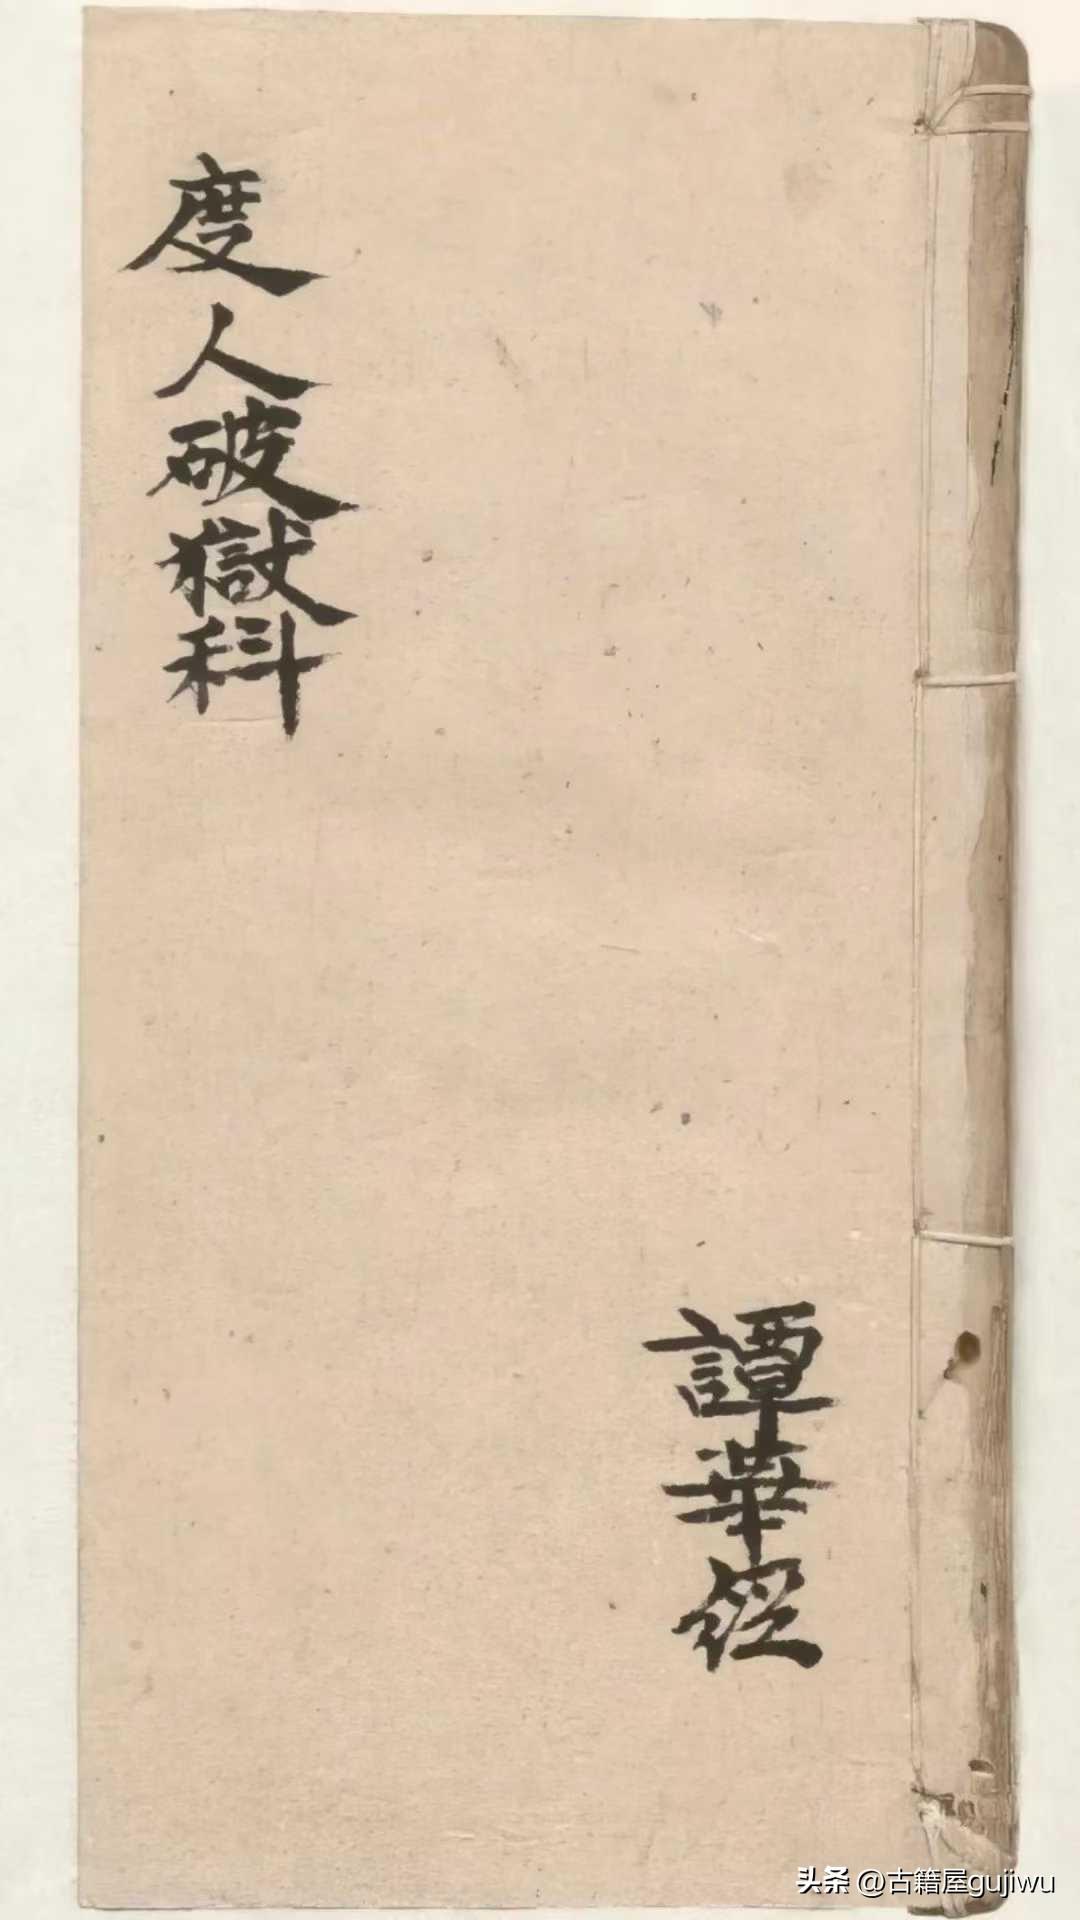 度人破獄科
譚華經
头条 @古籍屋gujiwu